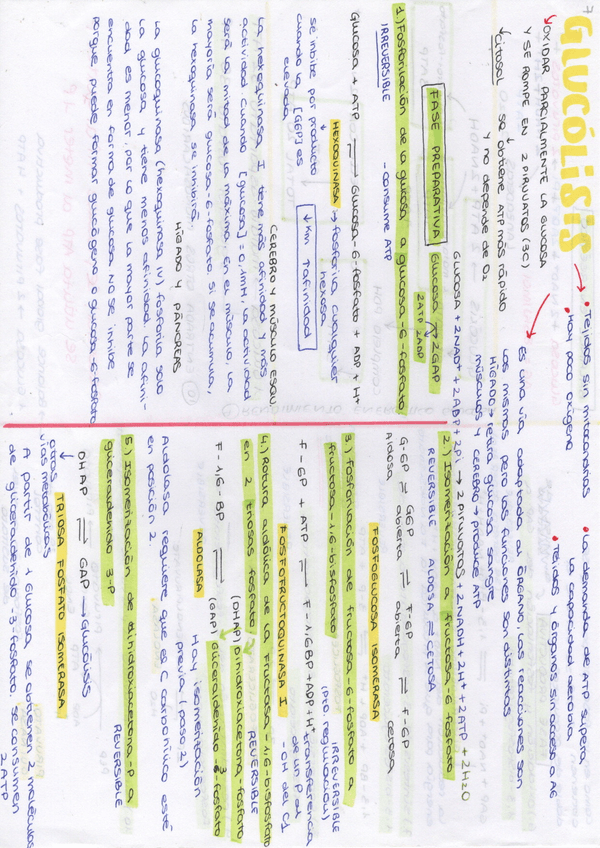 7
GLUCÓLISIS
OXIDAR PARCIALMENTE LA GLUCOSA
Y SE ROMPE EN 2 PIRUVATOS (3C)
citosol se obtiene ATP más rápido
y no depende de O2
• Tejidos sin mitocondrias
• Hay poco oxígeno
• La demanda de ATP supera
la capacidad aerobia
• Tejidos y órganos sin acceso a AG
Es una vía adaptada al órgano, las reacciones son
las mismas pero las funciones son distintas
HÍGADO → retira glucosa sangre
músculos y CEREBRO → produce ATP
Glucosa + 2NAD+ + 2ADP + 2Pi → 2 PIRUVATOS + 2NADH + 2H+ + 2ATP + 2H2O
FASE PREPARATIVA
Glucosa → 2GAP
2ATP 2ADP
1) Fosforilación de la glucosa a glucosa-6-fosfato
IRREVERSIBLE
- consume ATP
Glucosa + ATP ⇌ Glucosa-6-fosfato + ADP + H+
HEXOQUINASA → fosforila cualquier
hexosa
↓ Km ↑afinidad
se inhibe por producto
cuando la [G6P] es
elevada
CEREBRO Y MÚSCULO ESQU.
La hexoquinasa I tiene más afinidad y más
actividad cuando [glucosa] = 0,1mM, la actividad
será la mitad de la máxima. En el músculo, la
mayoría será glucosa-6-fosfato, si se acumula,
la hexoquinasa se inhibirá.
HÍGADO Y PÁNCREAS
La glucoquinasa (hexoquinasa IV) fosforila solo
la glucosa y tiene menos afinidad. La afini-
dad es menor, por lo que la mayor parte se
encuentra en forma de glucosa. No se inhibe
porque puede formar glucógeno o glucosa-6-fosfato
2) Isomerización a fructosa-6-fosfato
REVERSIBLE ALDOSA ⇌ CETOSA
G-6P ⇌ G6P ⇌ F-6P ⇌ F-6P
Aldosa abierta abierta cetosa
FOSFOGLUCOSA ISOMERASA
3) Fosforilación de fructosa-6-fosfato a
fructosa-1,6-bisfosfato
IRREVERSIBLE
(pto. regulación)
F-6P + ATP ⇌ F-1,6BP + ADP + H+
transferencia
de un P al
-OH del C1
FOSFOFRUCTOQUINASA I
4) Rotura aldólica de la Fructosa-1,6-bisfosfato
en 2 triosas fosfato
REVERSIBLE
(DHAP) Dihidroxiacetona fosfato
F-1,6-BP ⇌ (GAP) Gliceraldehído-3-fosfato
ALDOLASA
Hay isomerización
previa (paso 2)
Aldolasa requiere que el C carbonílico esté
en posición 2.
5) Isomerización de dihidroxiacetona-P a
gliceraldehído 3-P
REVERSIBLE
DHAP ⇌ GAP → Glucólisis
otras
vías metabólicas
TRIOSA FOSFATO ISOMERASA
A partir de 1 glucosa se obtienen 2 moléculas
de gliceraldehído 3-fosfato, se consumen
2ATP